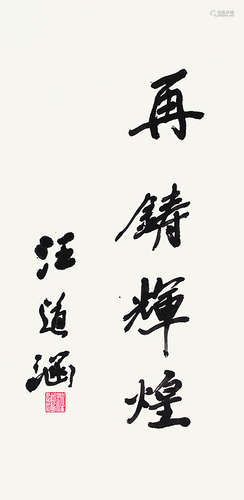 再鑄輝煌
汪道涵